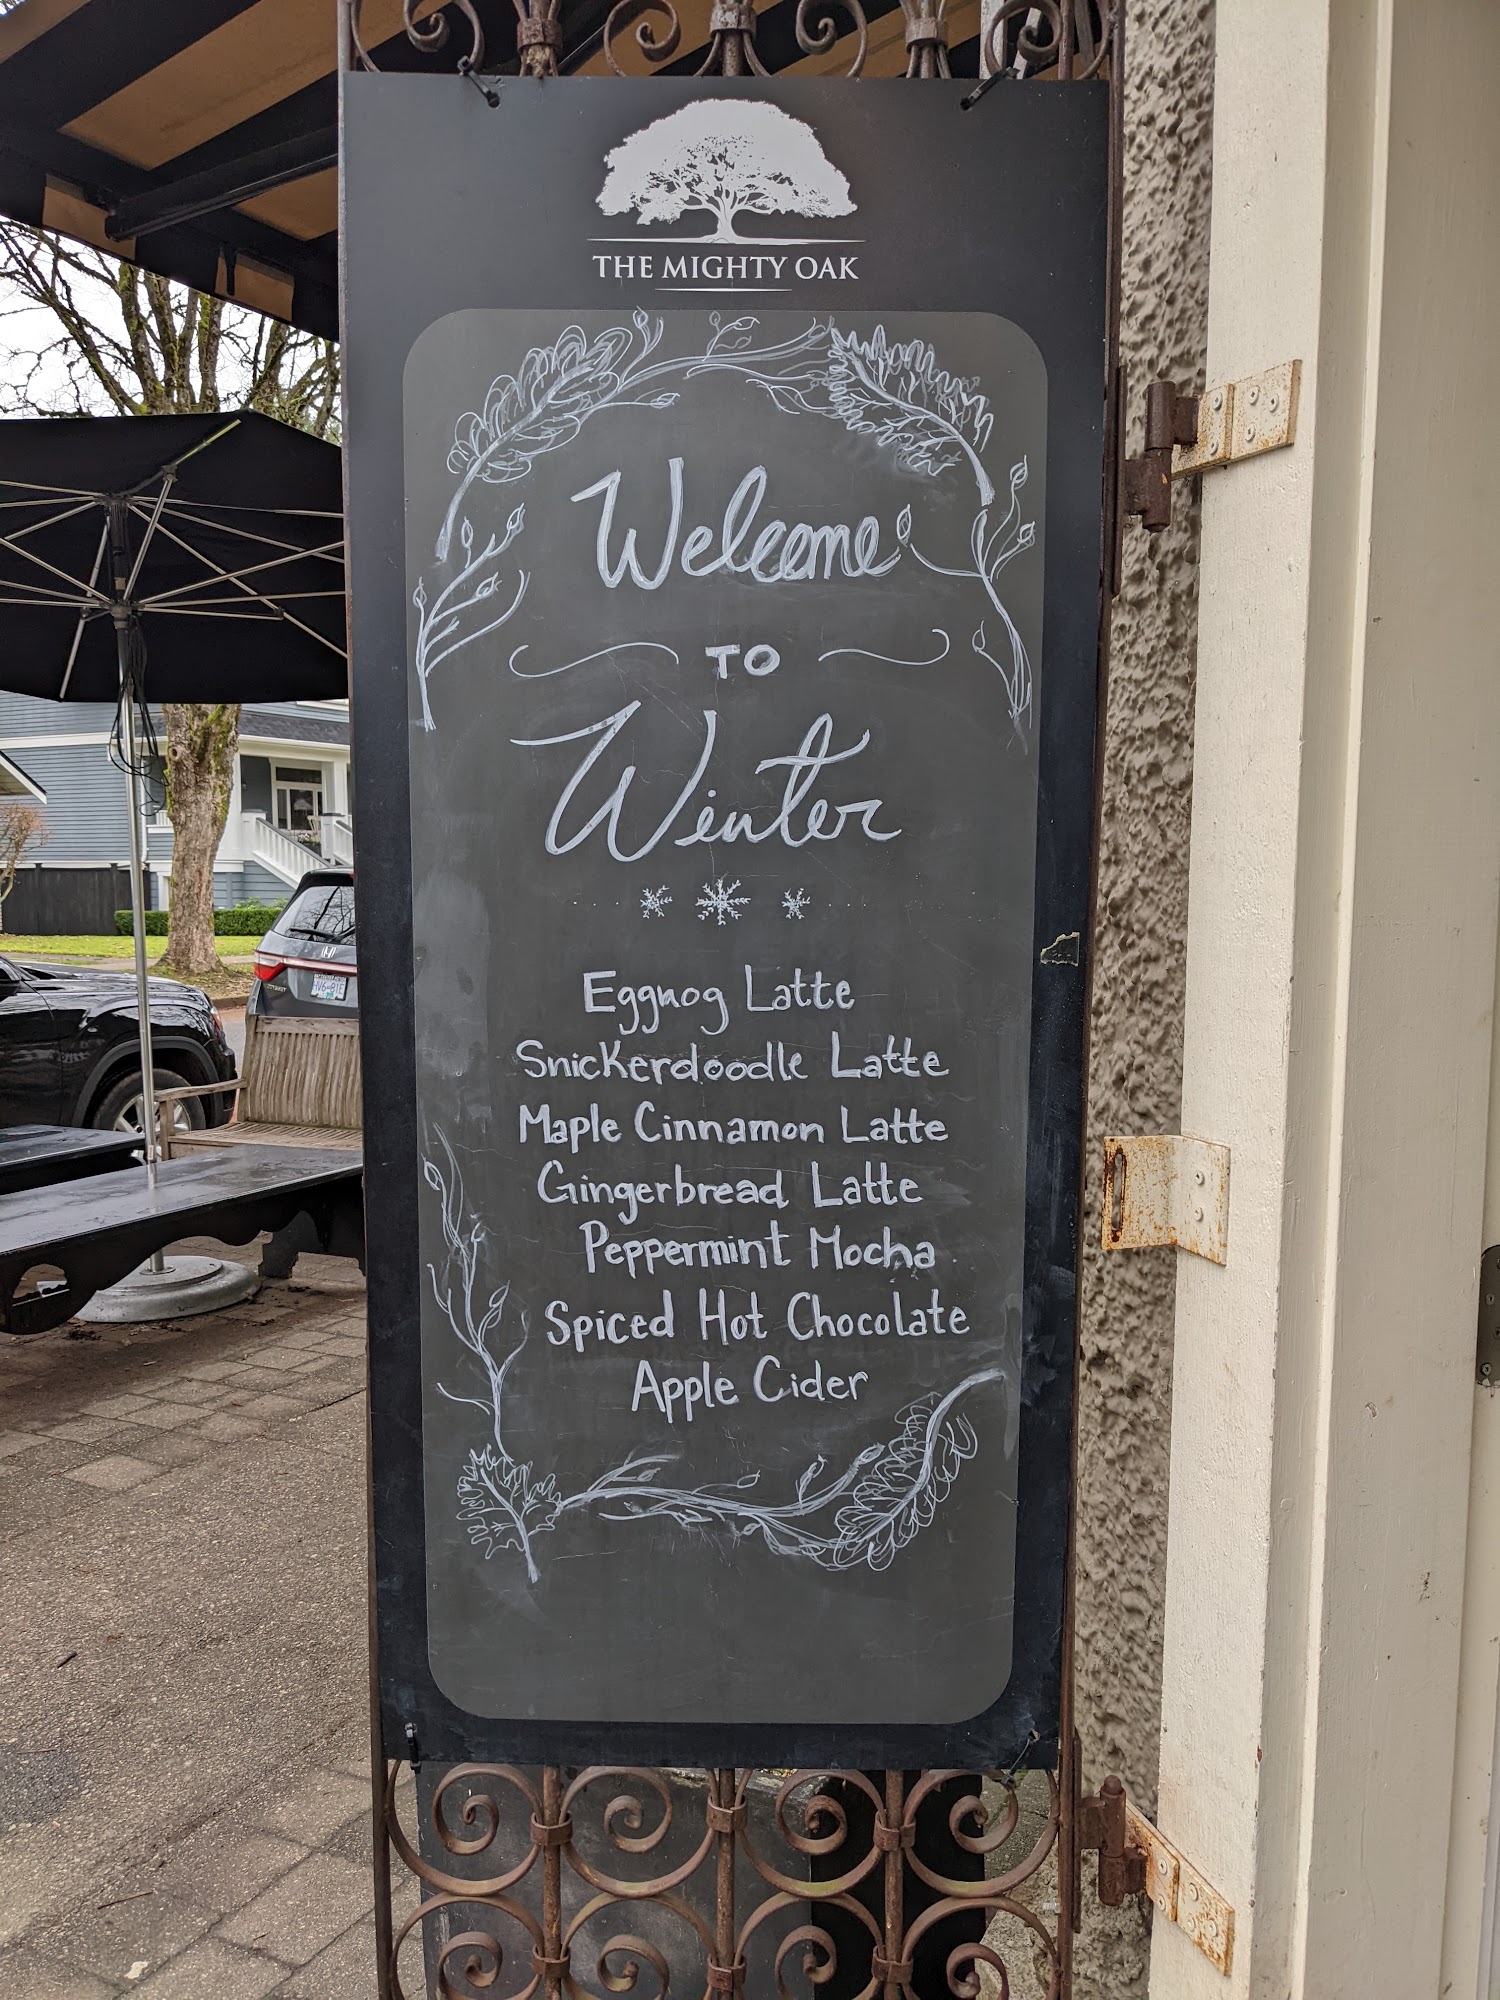 THE MIGHTY OAK
Welcome
TO
Winter
Eggnog Latte
Snickerdoodle Latte
Maple Cinnamon Latte
Gingerbread Latte
Peppermint Mocha
Spiced Hot Chocolate
Apple Cider